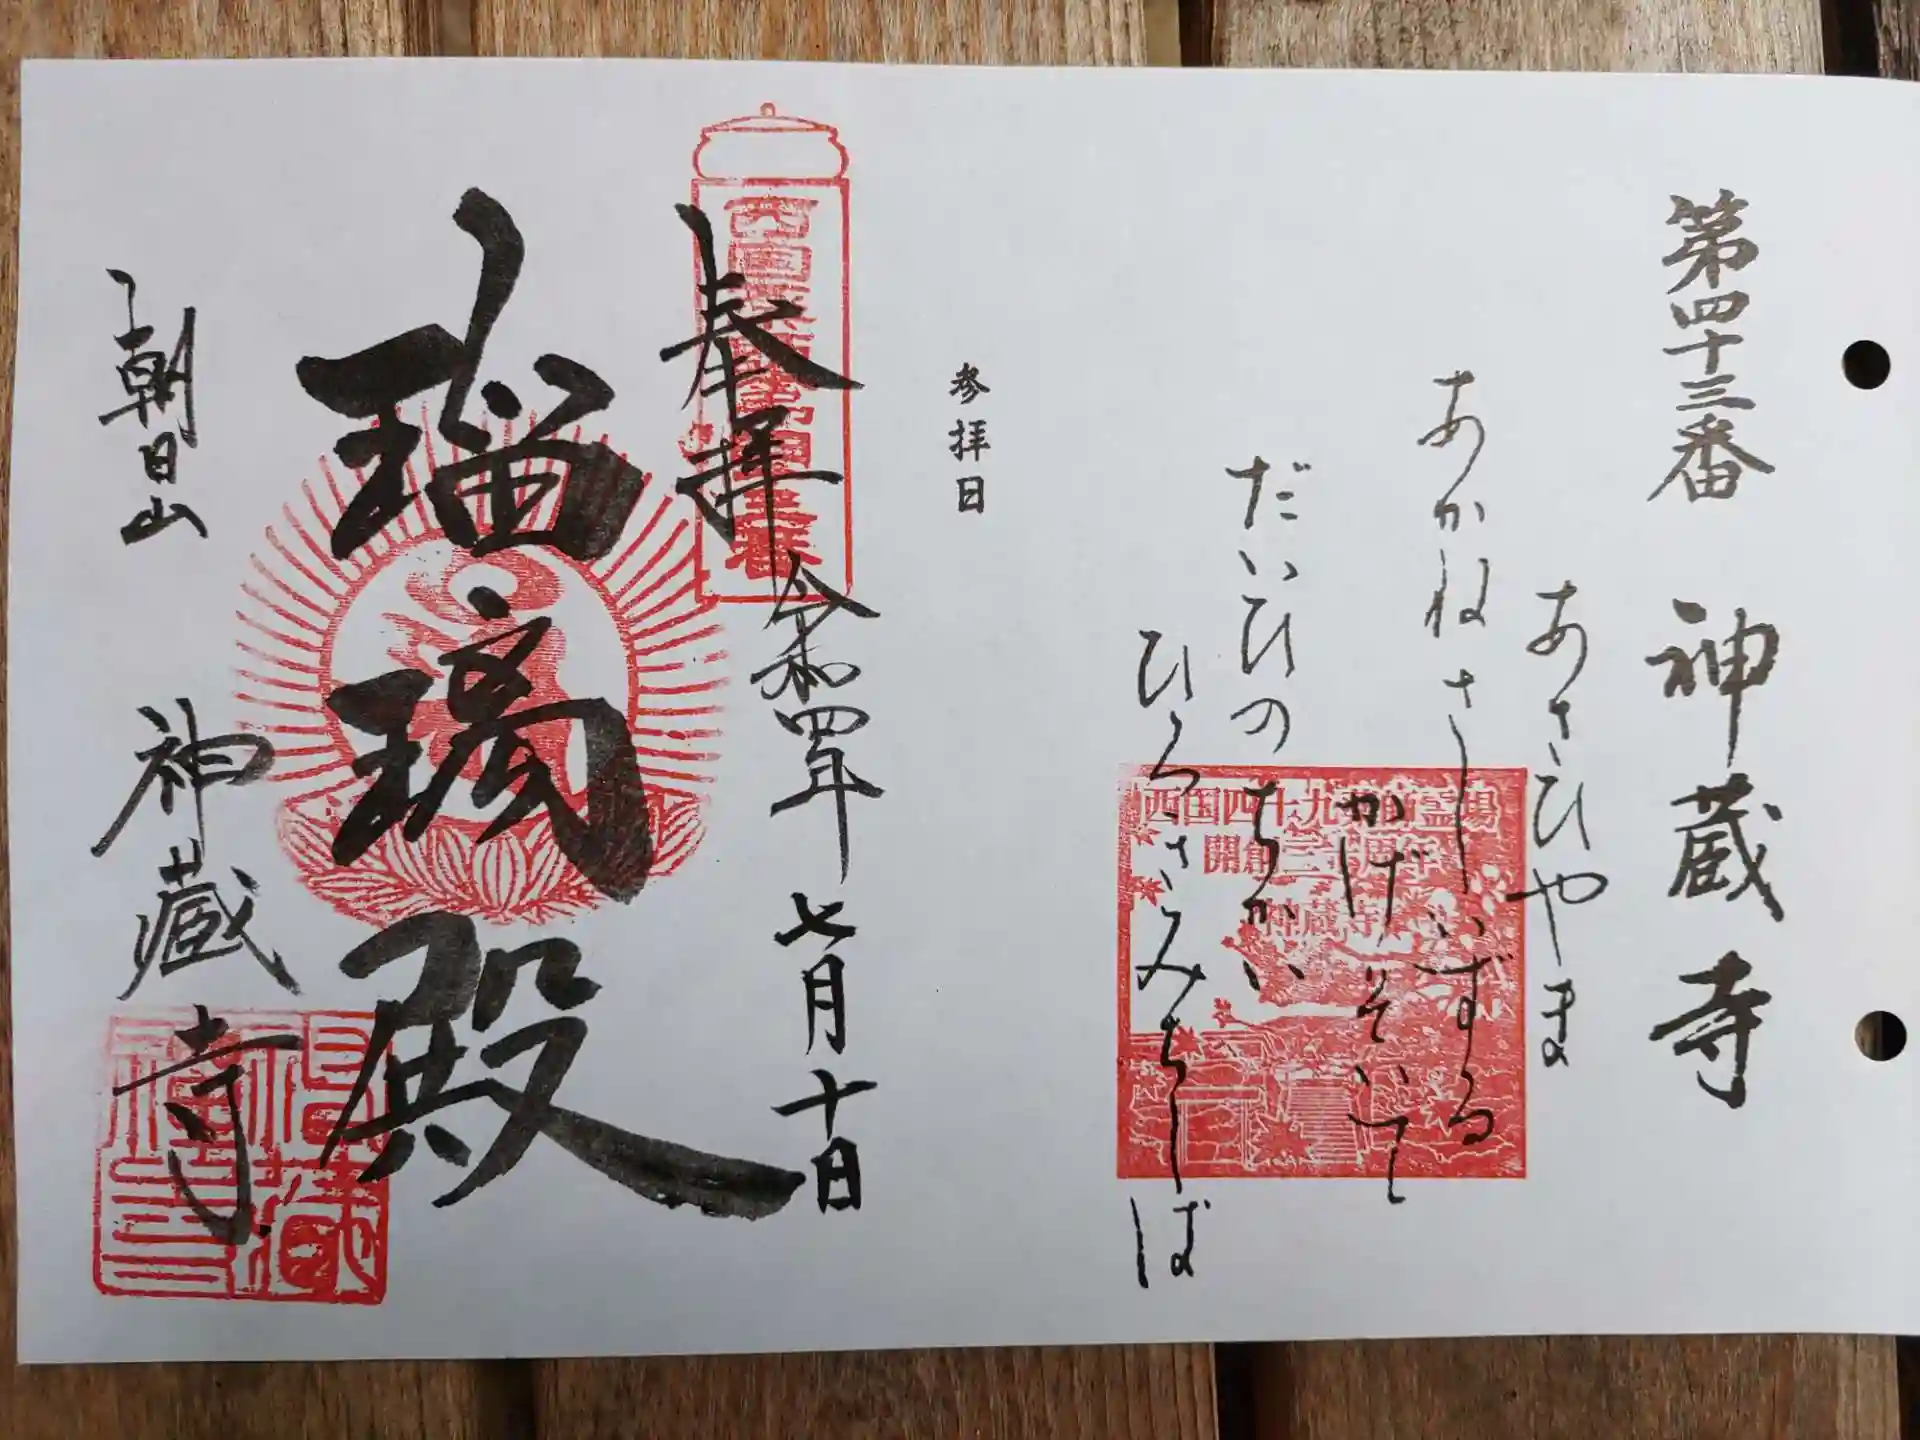 第四十三番 神蔵寺
あさひやま
あかねさしいずる
かげりそいて
だいひのちかい
ひろさみちしば
西国四十九薬師霊場
開創三十周年
神蔵寺
参拝日
奉拝 令和四年七月十日
瑠璃殿
朝日山 神蔵寺